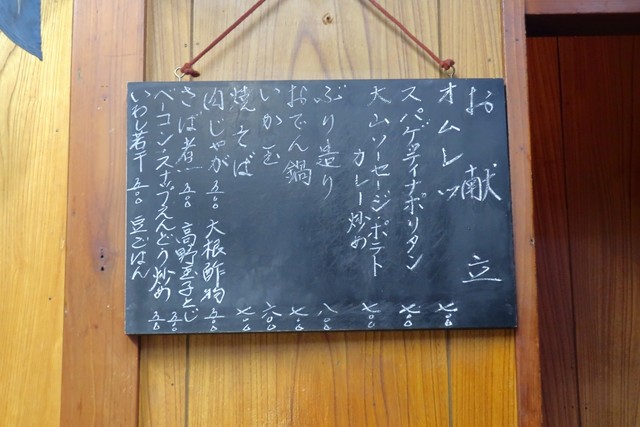 お献立
オムレツ 七〇〇
スパゲッティナポリタン 七〇〇
大山ソーセージ・ポテト
カレー炒め 七〇〇
ぶり造り 八〇〇
おでん鍋 七〇〇
いか玉 六〇〇
焼そば 七〇〇
肉じゃが 五〇〇 大根酢物 五〇〇
さば煮 五〇〇 高野玉子とじ 五五〇
ベーコンスナップえんどう炒め 五五〇
いわし若干 五〇〇 豆ごはん